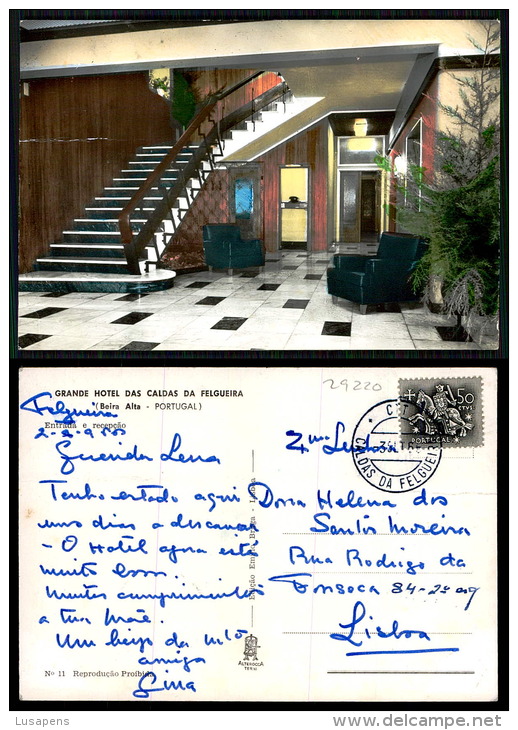 GRANDE HOTEL DAS CALDAS DA FELGUEIRA
(Beira Alta - PORTUGAL)
Entrada e recepção
Felgueira
Querida Lena
Tenho estado aqui
uns dias a descansar
- O Hotel agora está
muito bom.
Muitos cumprimentos
a tua Mãe.
Um beijo da
amiga
Gina
Nº 11 Reprodução Proibida
Edição Lisboa
ALTEROCCA
TERNI
29220
50
CTVS
PORTUGAL
CTT
CALDAS DA FELGUEIRA
Dona Helena dos
Santos Moreira
Rua Rodrigo da
Fonseca 84-2º
Lisboa
Lusapens
delcampe.net